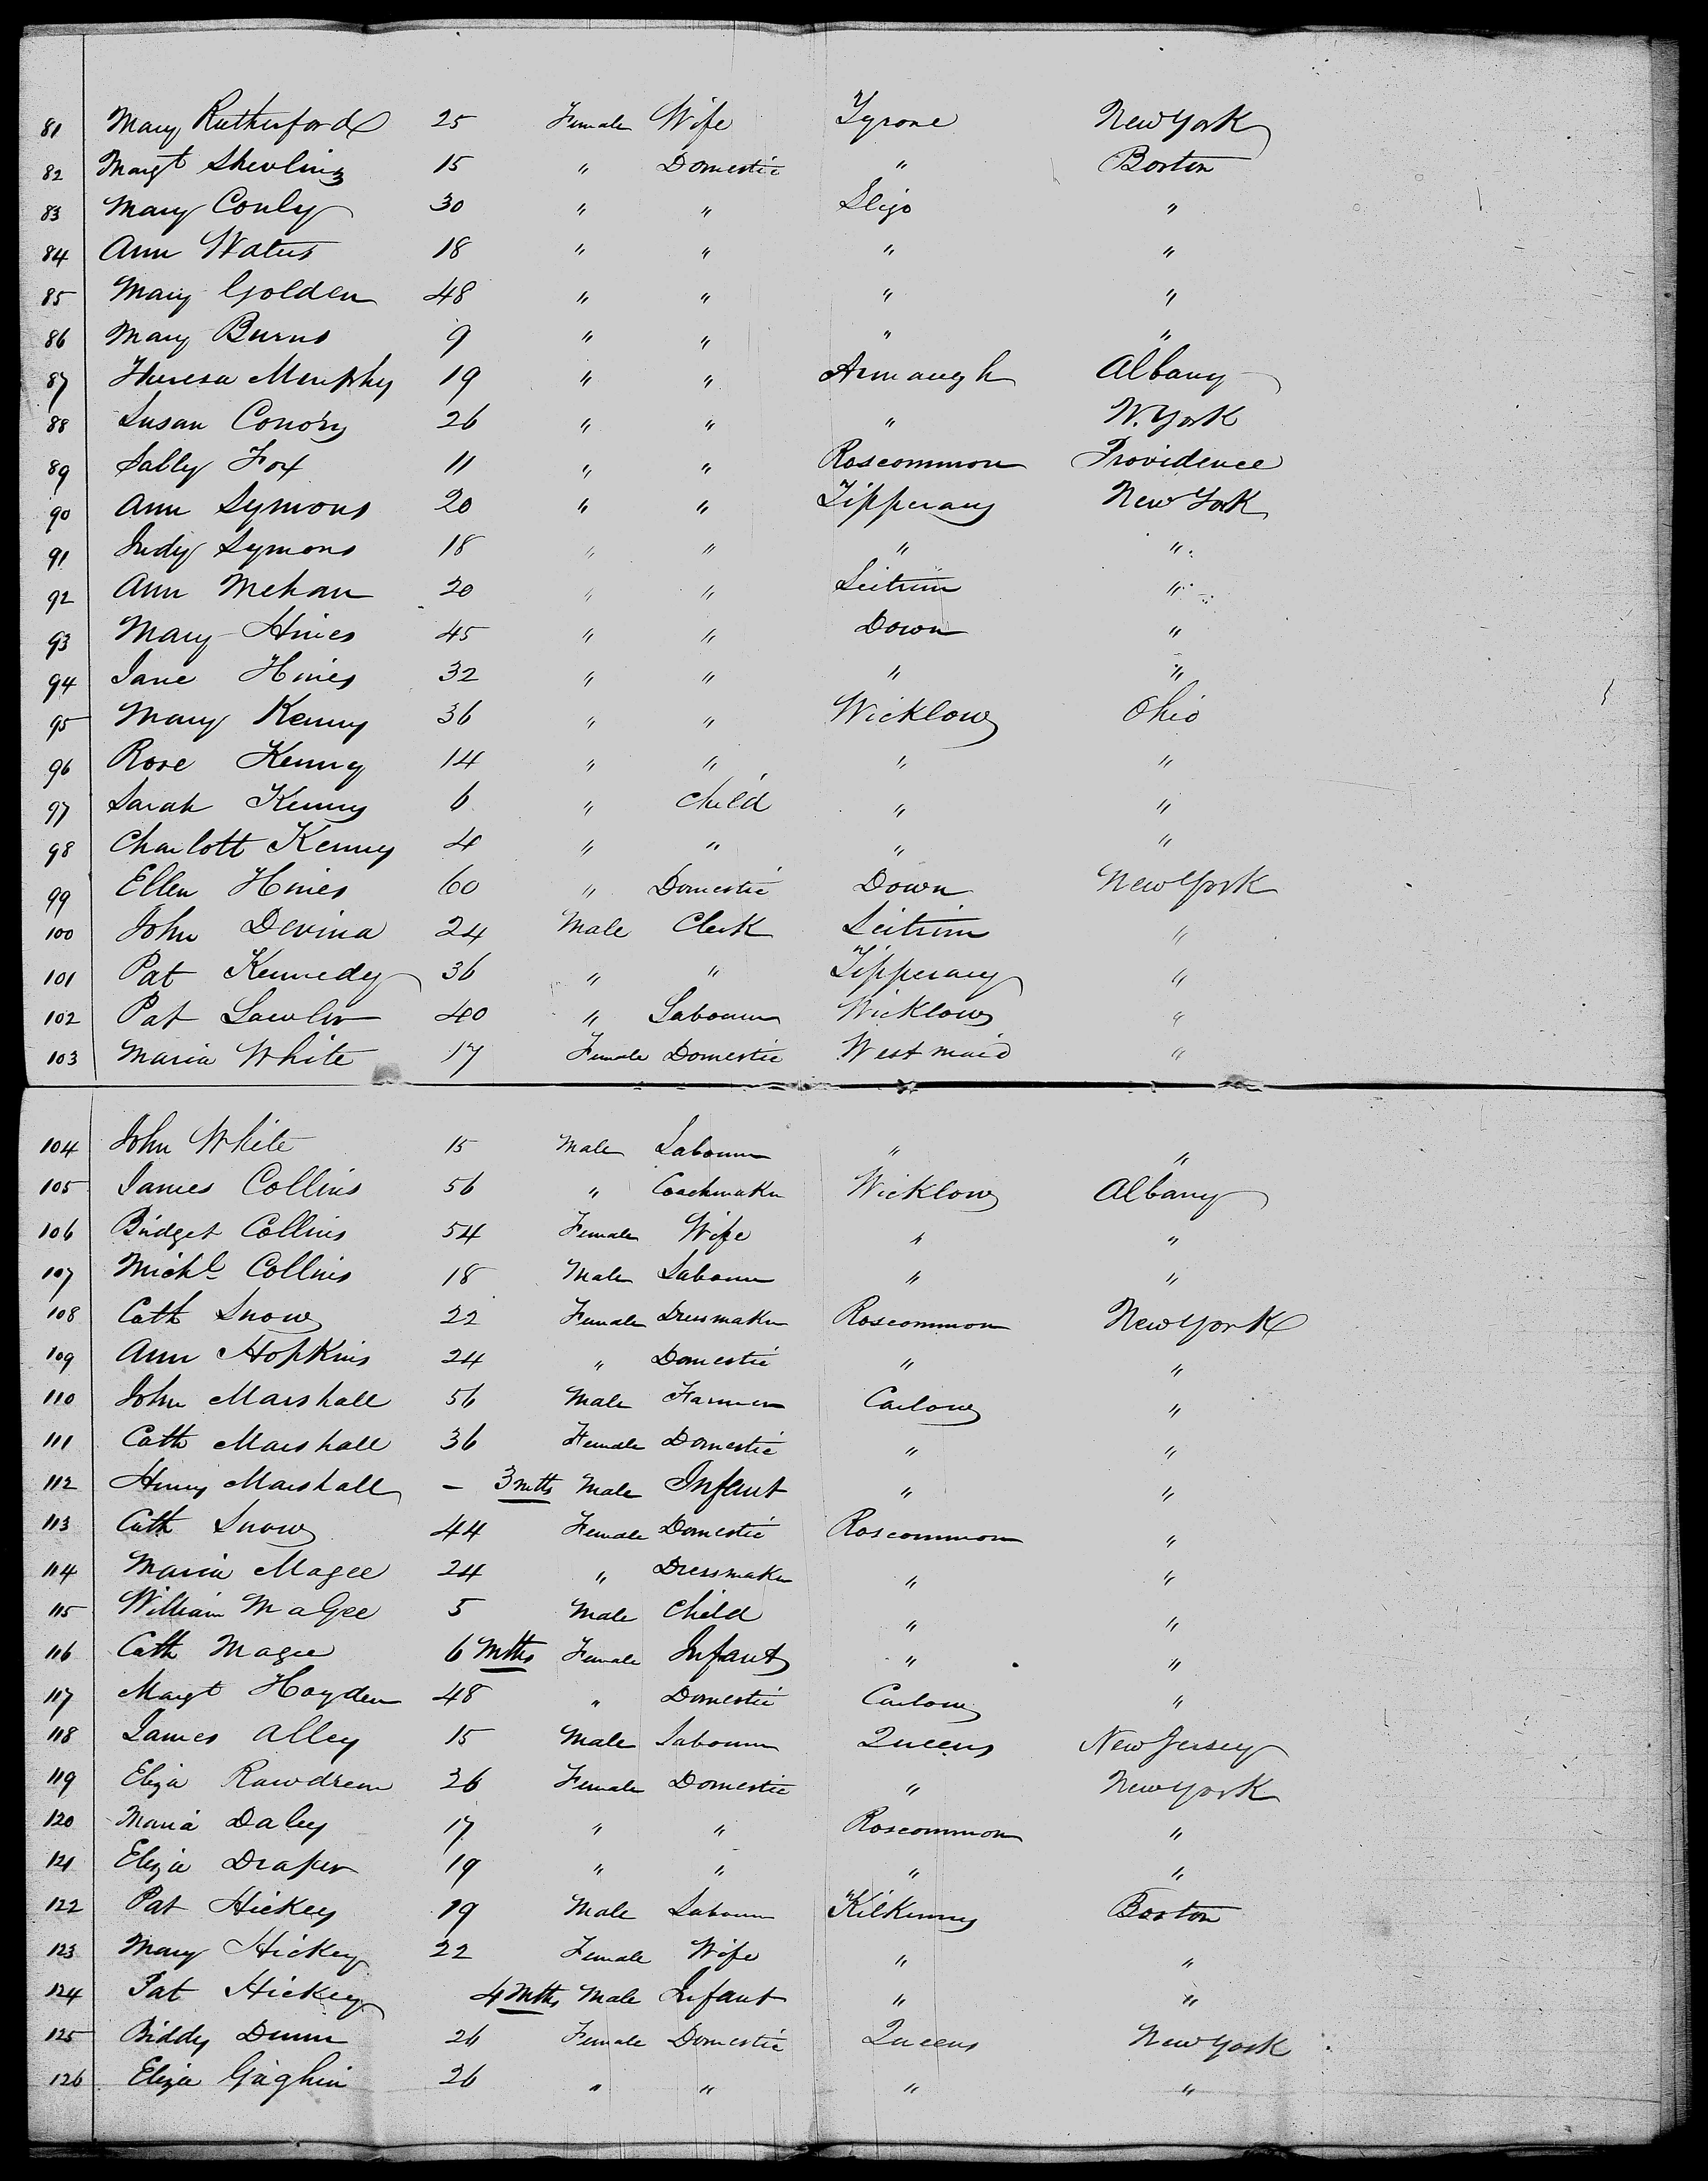 81 Mary Rutherford 25 Female Wife Tyrone New York
82 Margt Shevling 15 " Domestic " Boston
83 Mary Conly 30 " " Sligo "
84 Ann Waters 18 " " " "
85 Mary Golden 48 " " " "
86 Mary Burns 9 " " " "
87 Theresa Murphy 19 " " Armaugh Albany
88 Susan Conory 26 " " " N. York
89 Sally Fox 11 " " Roscommon Providence
90 Ann Symons 20 " " Tipperary New York
91 Judy Symons 18 " " " "
92 Ann Mehan 20 " " Leitrim "
93 Mary Hines 45 " " Down "
94 Jane Hines 32 " " " "
95 Mary Kenny 36 " " Wicklow Ohio
96 Rose Kenny 14 " " " "
97 Sarah Kenny 6 " Child " "
98 Charlott Kenny 4 " " " "
99 Ellen Hines 60 " Domestic Down New York
100 John Devina 24 Male Clerk Leitrim "
101 Pat Kennedy 36 " " Tipperary "
102 Pat Lawler 40 " Labourer Wicklow "
103 Maria White 17 Female Domestic Westmaid "
104 John White 15 Male Labourer " "
105 James Collins 56 " Coachmaker Wicklow Albany
106 Bridget Collins 54 Female Wife " "
107 Michl Collins 18 Male Labourer " "
108 Cath Snow 22 Female Dressmaker Roscommon New York
109 Ann Hopkins 24 " Domestic " "
110 John Marshall 56 Male Farmer Carlow "
111 Cath Marshall 36 Female Domestic " "
112 Henry Marshall – 3 mths Male Infant " "
113 Cath Snow 44 Female Domestic Roscommon "
114 Maria Magee 24 " Dressmaker " "
115 William MaGee 5 Male Child " "
116 Cath Magee 6 Mths Female Infant " "
117 Margt Hayden 48 " Domestic Carlow "
118 James Alley 15 Male Labourer Queens New Jersey
119 Eliza Rawdrem 26 Female Domestic " New York
120 Maria Daley 17 " " Roscommon "
121 Eliza Draper 19 " " " "
122 Pat Hickey 19 Male Labourer Kilkenny Boston
123 Mary Hickey 22 Female Wife " "
124 Pat Hickey 4 Mths Male Infant " "
125 Biddy Dunn 26 Female Domestic Queens New York
126 Eliza Gaghin 26 " " " "